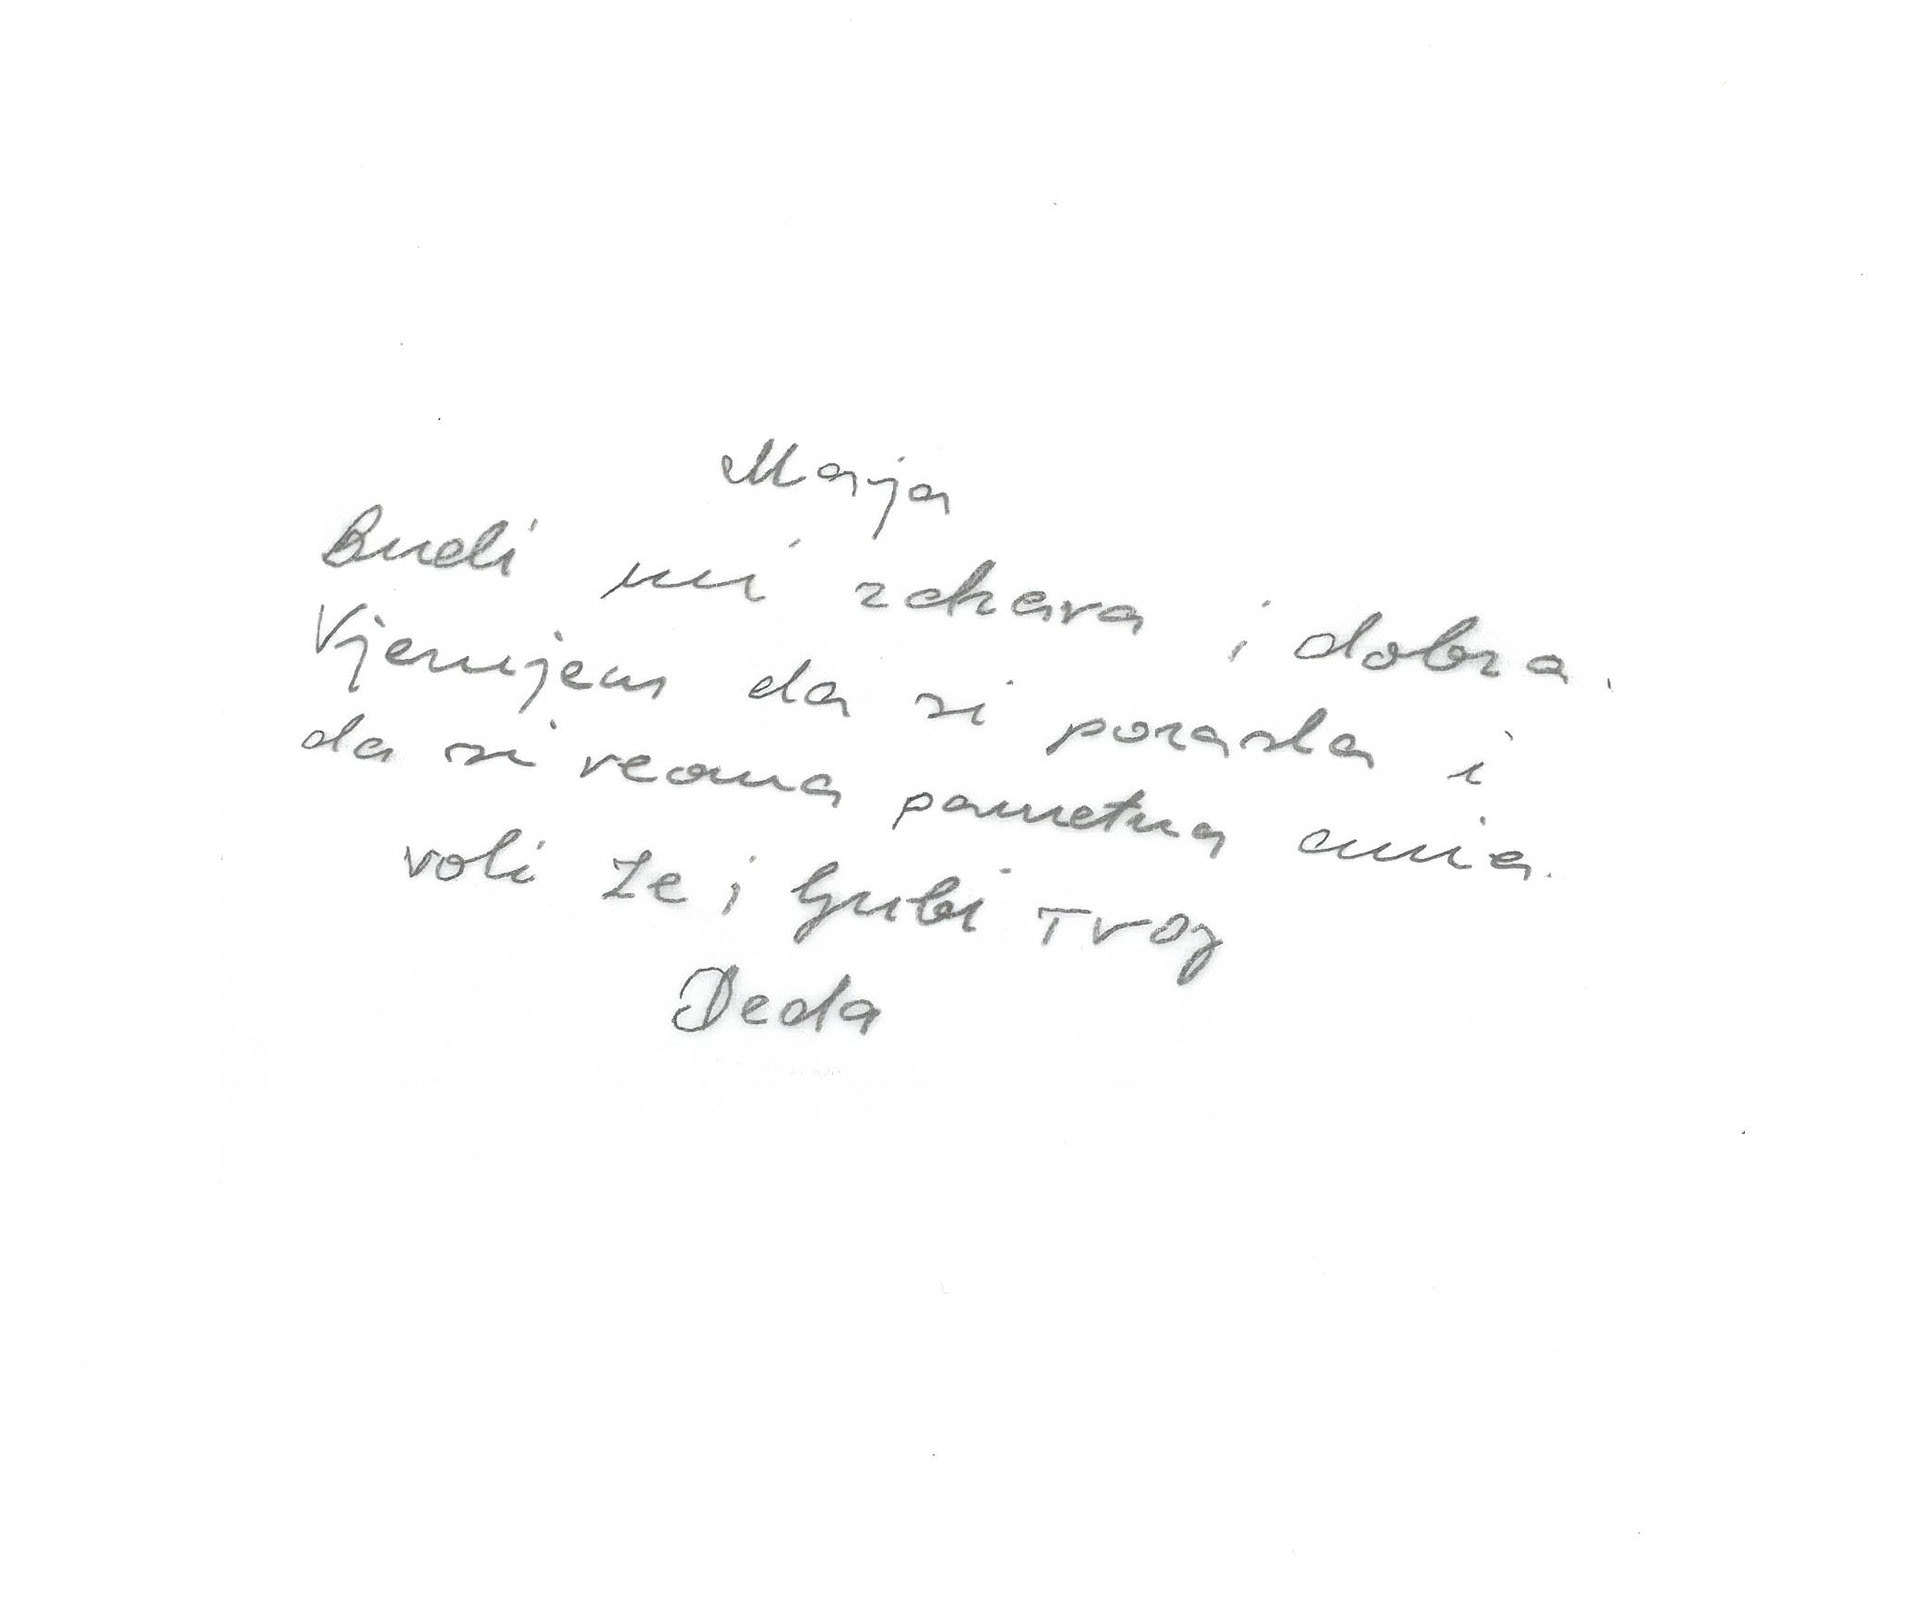 Maja
Budi mi zdrava i dobra.
Vjerujem da si porasla i
da si veoma pametna
voli Te i ljubi Tvoj
Deda